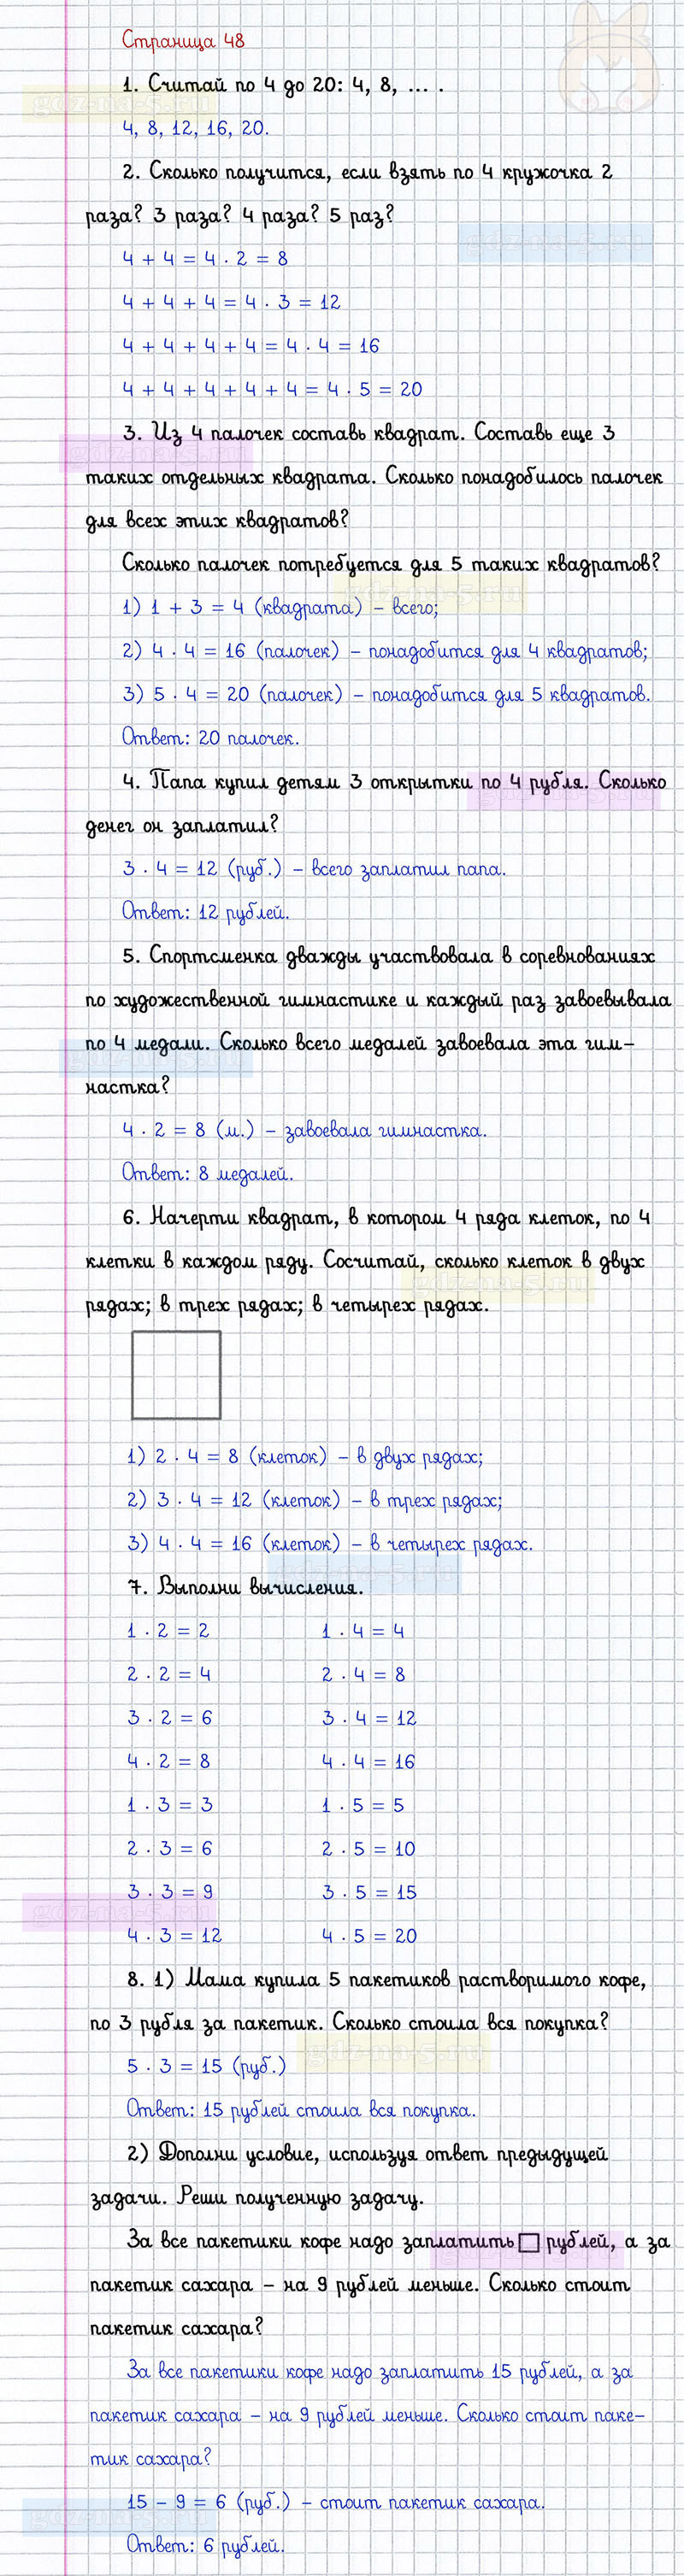 Страница 48
1. Считай по 4 до 20: 4, 8, ... .
4, 8, 12, 16, 20.
2. Сколько получится, если взять по 4 кружочка 2
раза? 3 раза? 4 раза? 5 раз?
4 + 4 = 4 · 2 = 8
4 + 4 + 4 = 4 · 3 = 12
4 + 4 + 4 + 4 = 4 · 4 = 16
4 + 4 + 4 + 4 + 4 = 4 · 5 = 20
3. Из 4 палочек составь квадрат. Составь еще 3
таких отдельных квадрата. Сколько понадобилось палочек
для всех этих квадратов?
Сколько палочек потребуется для 5 таких квадратов?
1) 1 + 3 = 4 (квадрата) – всего;
2) 4 · 4 = 16 (палочек) – понадобится для 4 квадратов;
3) 5 · 4 = 20 (палочек) – понадобится для 5 квадратов.
Ответ: 20 палочек.
4. Папа купил детям 3 открытки по 4 рубля. Сколько
денег он заплатил?
3 · 4 = 12 (руб.) – всего заплатил папа.
Ответ: 12 рублей.
5. Спортсменка дважды участвовала в соревнованиях
по художественной гимнастике и каждый раз завоевывала
по 4 медали. Сколько всего медалей завоевала эта гим-
настка?
4 · 2 = 8 (м.) – завоевала гимнастка.
Ответ: 8 медалей.
6. Начерти квадрат, в котором 4 ряда клеток, по 4
клетки в каждом ряду. Сосчитай, сколько клеток в двух
рядах; в трех рядах; в четырех рядах.
1) 2 · 4 = 8 (клеток) – в двух рядах;
2) 3 · 4 = 12 (клеток) – в трех рядах;
3) 4 · 4 = 16 (клеток) – в четырех рядах.
7. Выполни вычисления.
1 · 2 = 2 1 · 4 = 4
2 · 2 = 4 2 · 4 = 8
3 · 2 = 6 3 · 4 = 12
4 · 2 = 8 4 · 4 = 16
1 · 3 = 3 1 · 5 = 5
2 · 3 = 6 2 · 5 = 10
3 · 3 = 9 3 · 5 = 15
4 · 3 = 12 4 · 5 = 20
8. 1) Мама купила 5 пакетиков растворимого кофе,
по 3 рубля за пакетик. Сколько стоила вся покупка?
5 · 3 = 15 (руб.)
Ответ: 15 рублей стоила вся покупка.
2) Дополни условие, используя ответ предыдущей
задачи. Реши полученную задачу.
За все пакетики кофе надо заплатить □ рублей, а за
пакетик сахара – на 9 рублей меньше. Сколько стоит
пакетик сахара?
За все пакетики кофе надо заплатить 15 рублей, а за
пакетик сахара – на 9 рублей меньше. Сколько стоит паке-
тик сахара?
15 – 9 = 6 (руб.) – стоит пакетик сахара.
Ответ: 6 рублей.